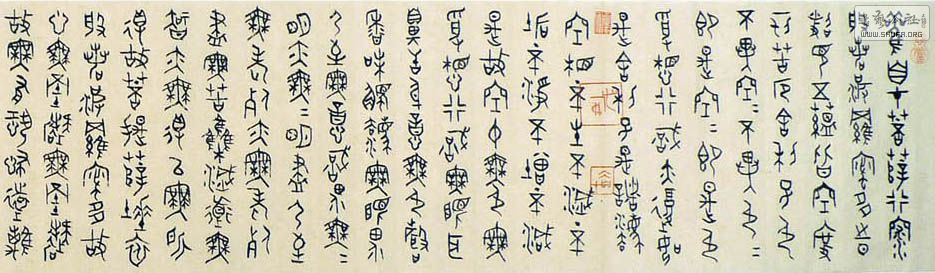 觀自在菩薩行深
般若波羅蜜多時
照見五蘊皆空度
一切苦厄舍利子色
不異空〻不異色〻
即是空〻即是色
受想行識亦復如
是舍利子是諸法
空相不生不滅不
垢不淨不增不減
是故空中無色無
受想行識無眼耳
鼻舌身意無色聲
香味觸法無眼界
乃至無意識界無〻
明亦無〻明盡乃至
無老死亦無老死
盡無苦集滅道無
智亦無得以無所
得故菩提薩埵依
般若波羅蜜多故
心無罣礙無罣礙
故無有恐怖遠離